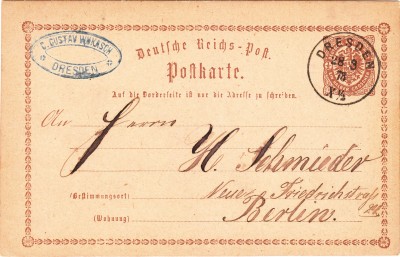 GUSTAV
DRESDEN
Deutsche Reichs-Post.
Postkarte.
DRESDEN
8 3
Auf die Vorderseite ist nur die Adresse zu schreiben.
An Herrn
H. Schmieder
(Bestimmungsort)
Neue Friedrichstraße
(Wohnung)
Berlin.